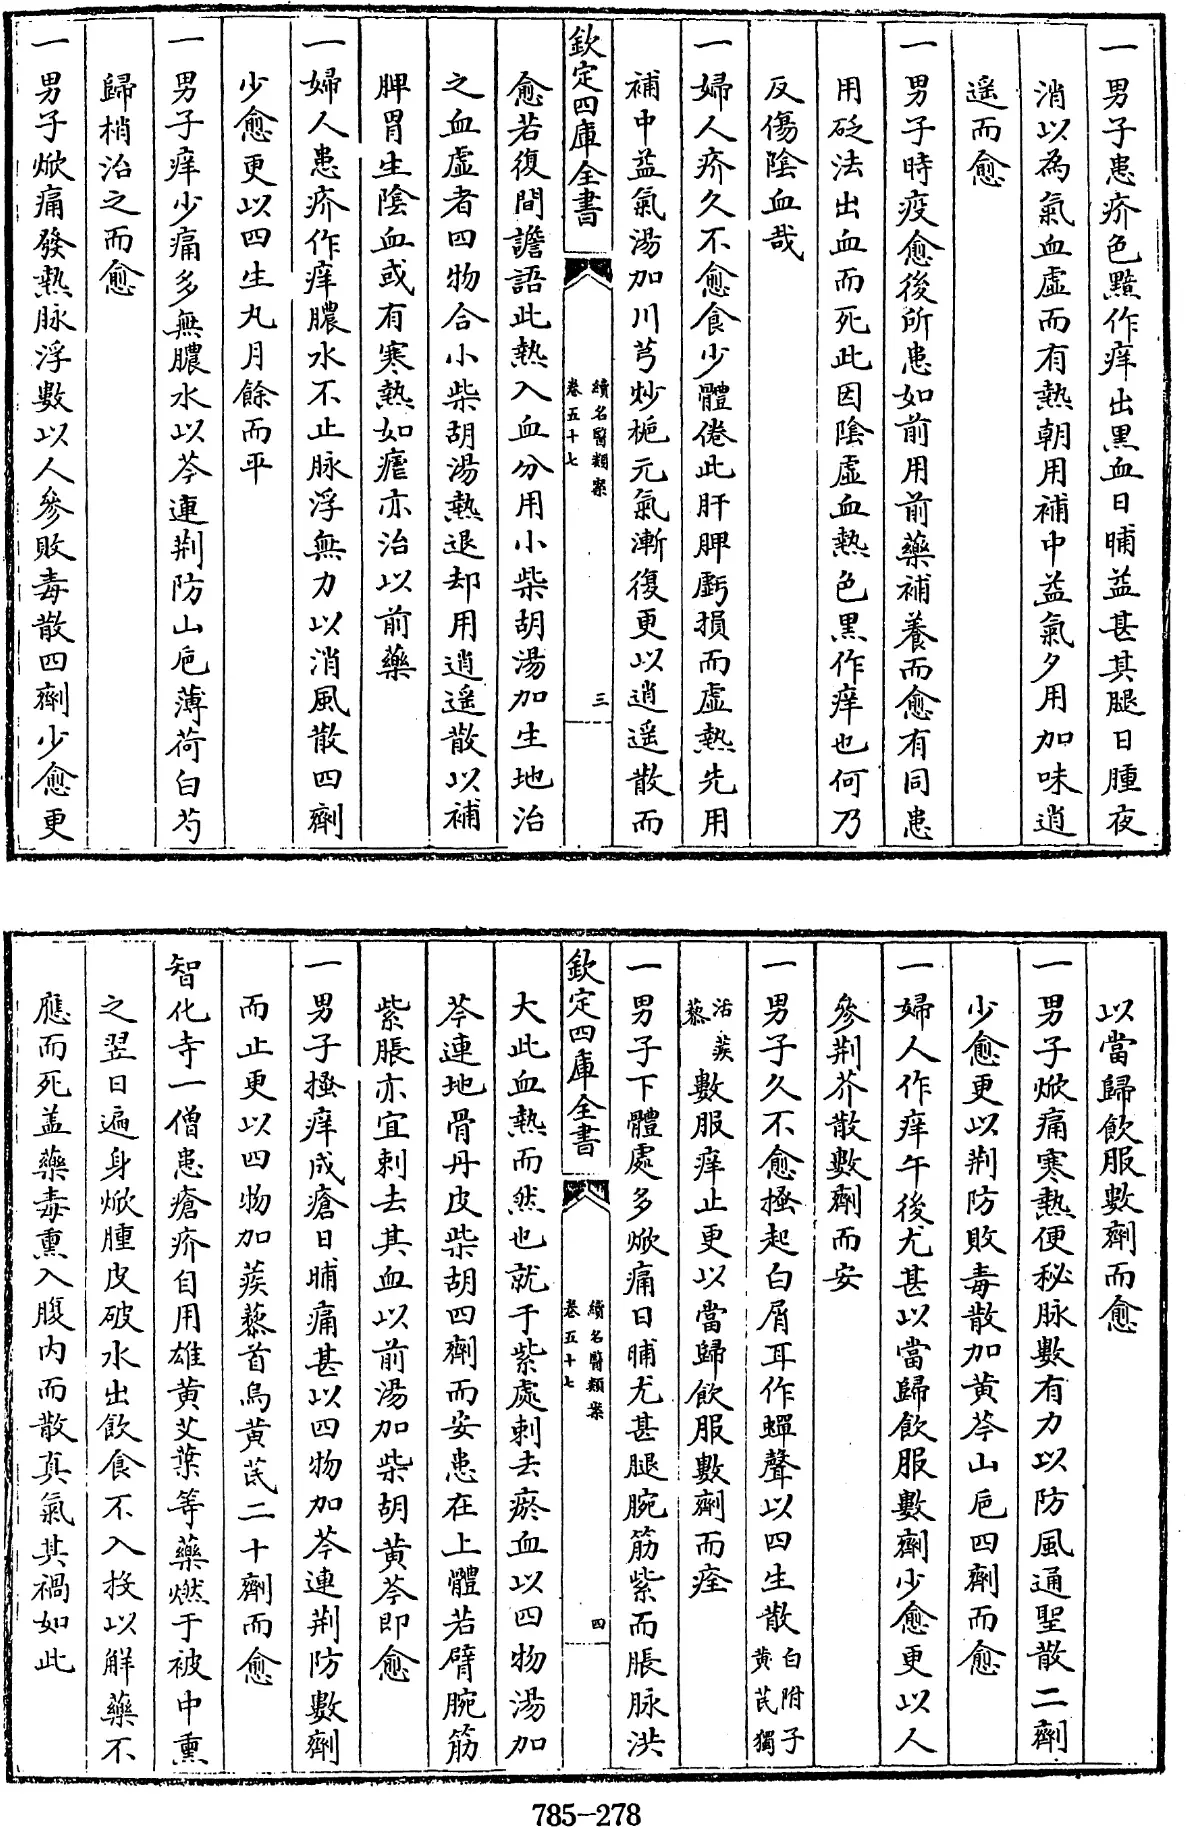 一男子患疥色黯作痒出黑血日晡益甚其腿日腫夜
消以為氣血虛而有熱朝用補中益氣夕用加味逍
遥而愈
一男子時疫愈後所患如前用前藥補養而愈有同患
用砭法出血而死此因陰虛血熱色黑作痒也何乃
反傷陰血哉
一婦人疥久不愈食少體倦此肝脾虧損而虛熱先用
補中益氣湯加川芎炒梔元氣漸復更以逍遥散而
欽定四庫全書
續名醫類案
卷五十七
三
愈若復間譫語此熱入血分用小柴胡湯加生地治
之血虛者四物合小柴胡湯熱退却用逍遥散以補
脾胃生陰血或有寒熱如瘧亦治以前藥
一婦人患疥作痒膿水不止脉浮無力以消風散四劑
少愈更以四生丸月餘而平
一男子痒少痛多無膿水以芩連荆防山巵薄荷白芍
歸梢治之而愈
一男子焮痛發熱脉浮數以人參敗毒散四劑少愈更
以當歸飲服數劑而愈
一男子焮痛寒熱便秘脉數有力以防風通聖散二劑
少愈更以荆防敗毒散加黄芩山巵四劑而愈
一婦人作痒午後尤甚以當歸飲服數劑少愈更以人
參荆芥散數劑而安
一男子久不愈搔起白屑耳作蟬聲以四生散白附子黄芪獨
活蒺藜數服痒止更以當歸飲服數劑而痊
一男子下體處多焮痛日晡尤甚腿腕筋紫而脹脉洪
欽定四庫全書
續名醫類案
卷五十七
四
大此血熱而然也就于紫處刺去瘀血以四物湯加
芩連地骨丹皮柴胡四劑而安患在上體若臂腕筋
紫脹亦宜刺去其血以前湯加柴胡黄芩即愈
一男子搔痒成瘡日晡痛甚以四物加芩連荆防數劑
而止更以四物加蒺藜首烏黄芪二十劑而愈
智化寺一僧患瘡疥自用雄黄艾葉等藥燃于被中熏
之翌日遍身焮腫皮破水出飲食不入投以解藥不
應而死盖藥毒熏入腹内而散真氣其禍如此
785-278